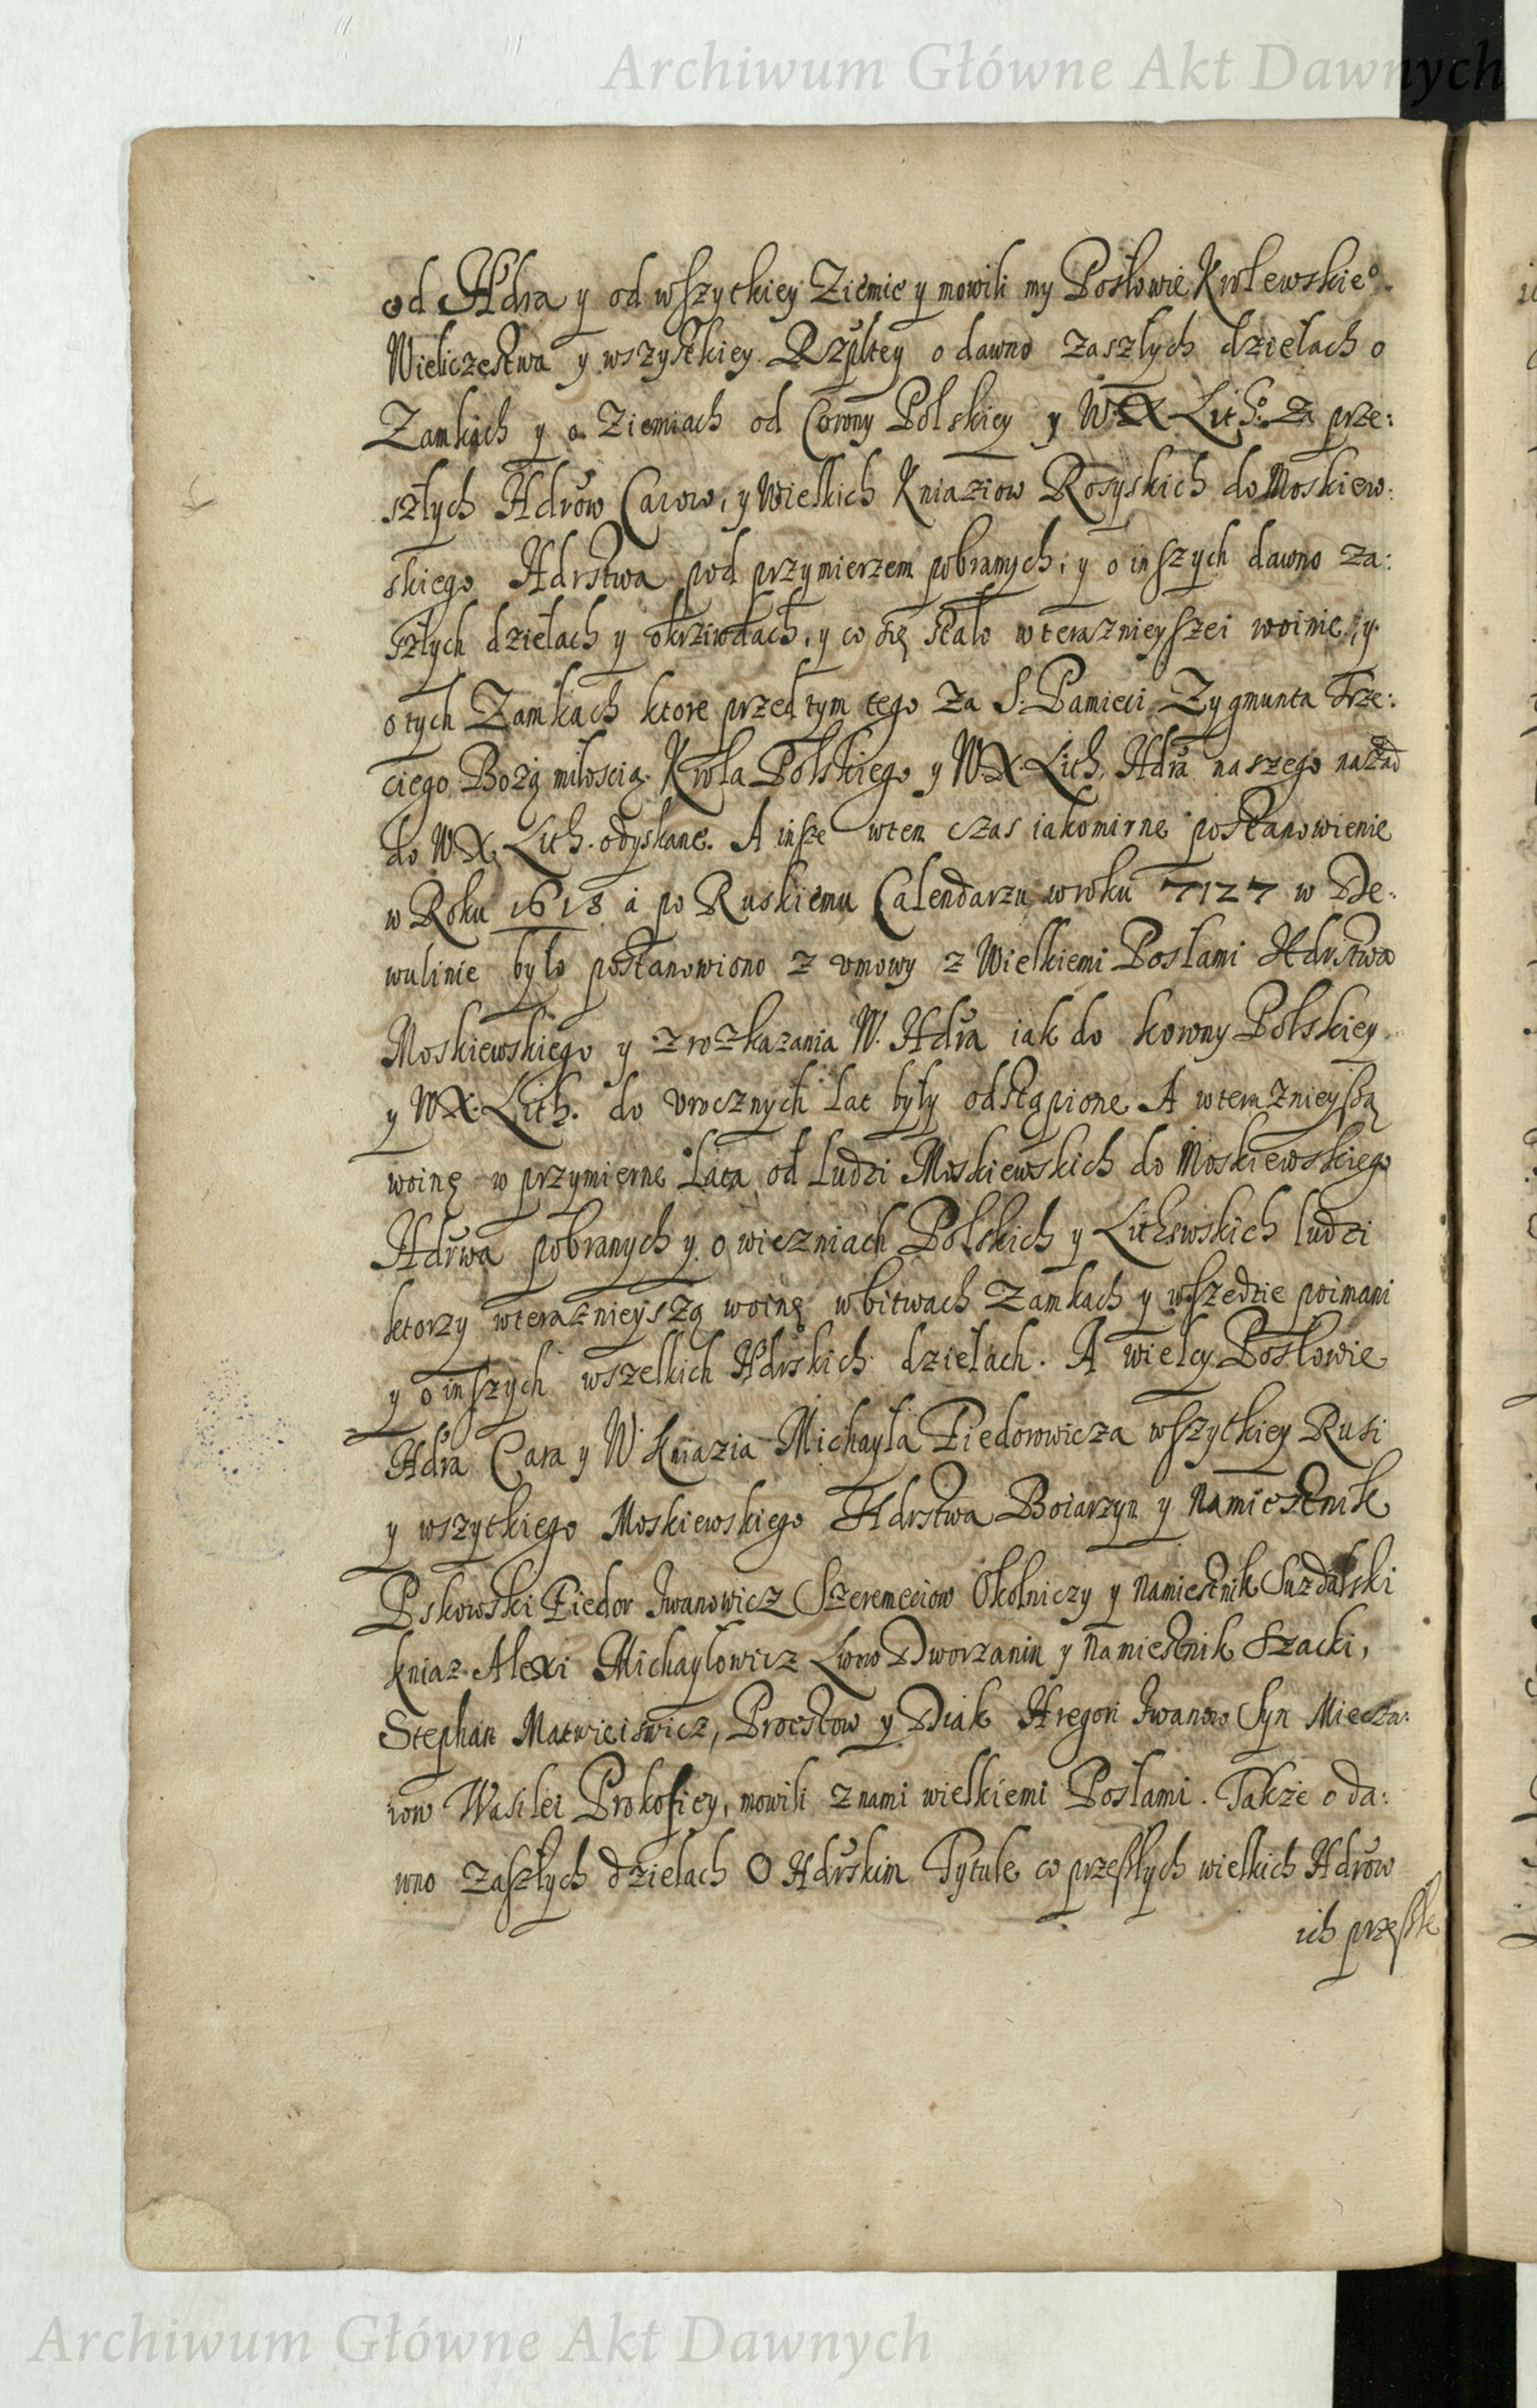 Archiwum Główne Akt Dawnych
od Hdra y od wszytkiey Ziemie y mowili my Posłowie Krolewskie°
Wieliczestwa y wszystkiey Rzpltey o dawno zaszłych dziełach o
Zamkach y o Ziemiach od Corony Polskiey y WX Lith: Za prze:
szłych Hdrow Carow, y Wielkich Kniaziow Rosyskich do Moskiew:
skiego Hdrstwa pod przymierzem pobranych, y o inszych dawno za:
szłych dziełach y okrziwdach, y co się stało w teraznieyszei woinie, y
o tych Zamkach ktore przed tym tego za S. Pamieci Zygmunta Trze:
ciego Bożą miłoscią Krola Polskiego y WX Lith. Hdra naszego nazad
do WX Lith. odyskane. A insze w ten czas iako mirne postanowienie
w Roku 1618 a po Ruskiemu Calendarzu w roku 7127 w De:
wulinie było postanowiono z vmowy z Wielkiemi Posłami Hdrstwa
Moskiewskiego y z rozkazania W. Hdra iak do korony Polskiey
y WX Lith. do vrocznych lat były odstąpione. A w terazniejszą
woinę w przymierne Lata od ludzi Moskiewskich do Moskiewskiego
Hdrwa pobranych y o wiezniach Polskich y Lithewskich ludzi
ktorzy w terazniejszą woinę w bitwach Zamkach y wszedzie poimani
y o inszych wszelkich Hdrskich dziełach. A wielcy Posłowie
Hdra Cara y W Kniazia Michayła Fiedorowicza wszytkiey Rusi
y wszytkiego Moskiewskiego Hdrstwa Boiarzyn y Namiestnik
Pskowski Fiedor Iwanowicz Szeremeciow Okolniczy y Namiestnik Suzdalski
kniaz Alexi Michayłowicz Lwow Dworzanin y Namiestnik Szacki,
Stephan Matwieiowicz, Proestow y Diak Hregori Iwanow Syn Miecza:
iow Wasilei Prokofiey, mowili z nami wielkiemi Posłami. Także o da:
wno zaszłych dziełach O Hdrskim Tytule co przeszłych wielkich Hdrow
ich przeszłe
Archiwum Główne Akt Dawnych